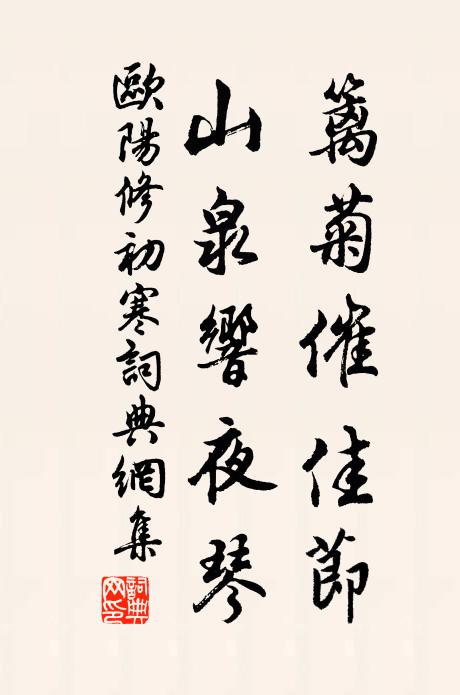 籬菊催佳節
山泉響夜琴
歐陽修初寒詞典網集
詞典網印